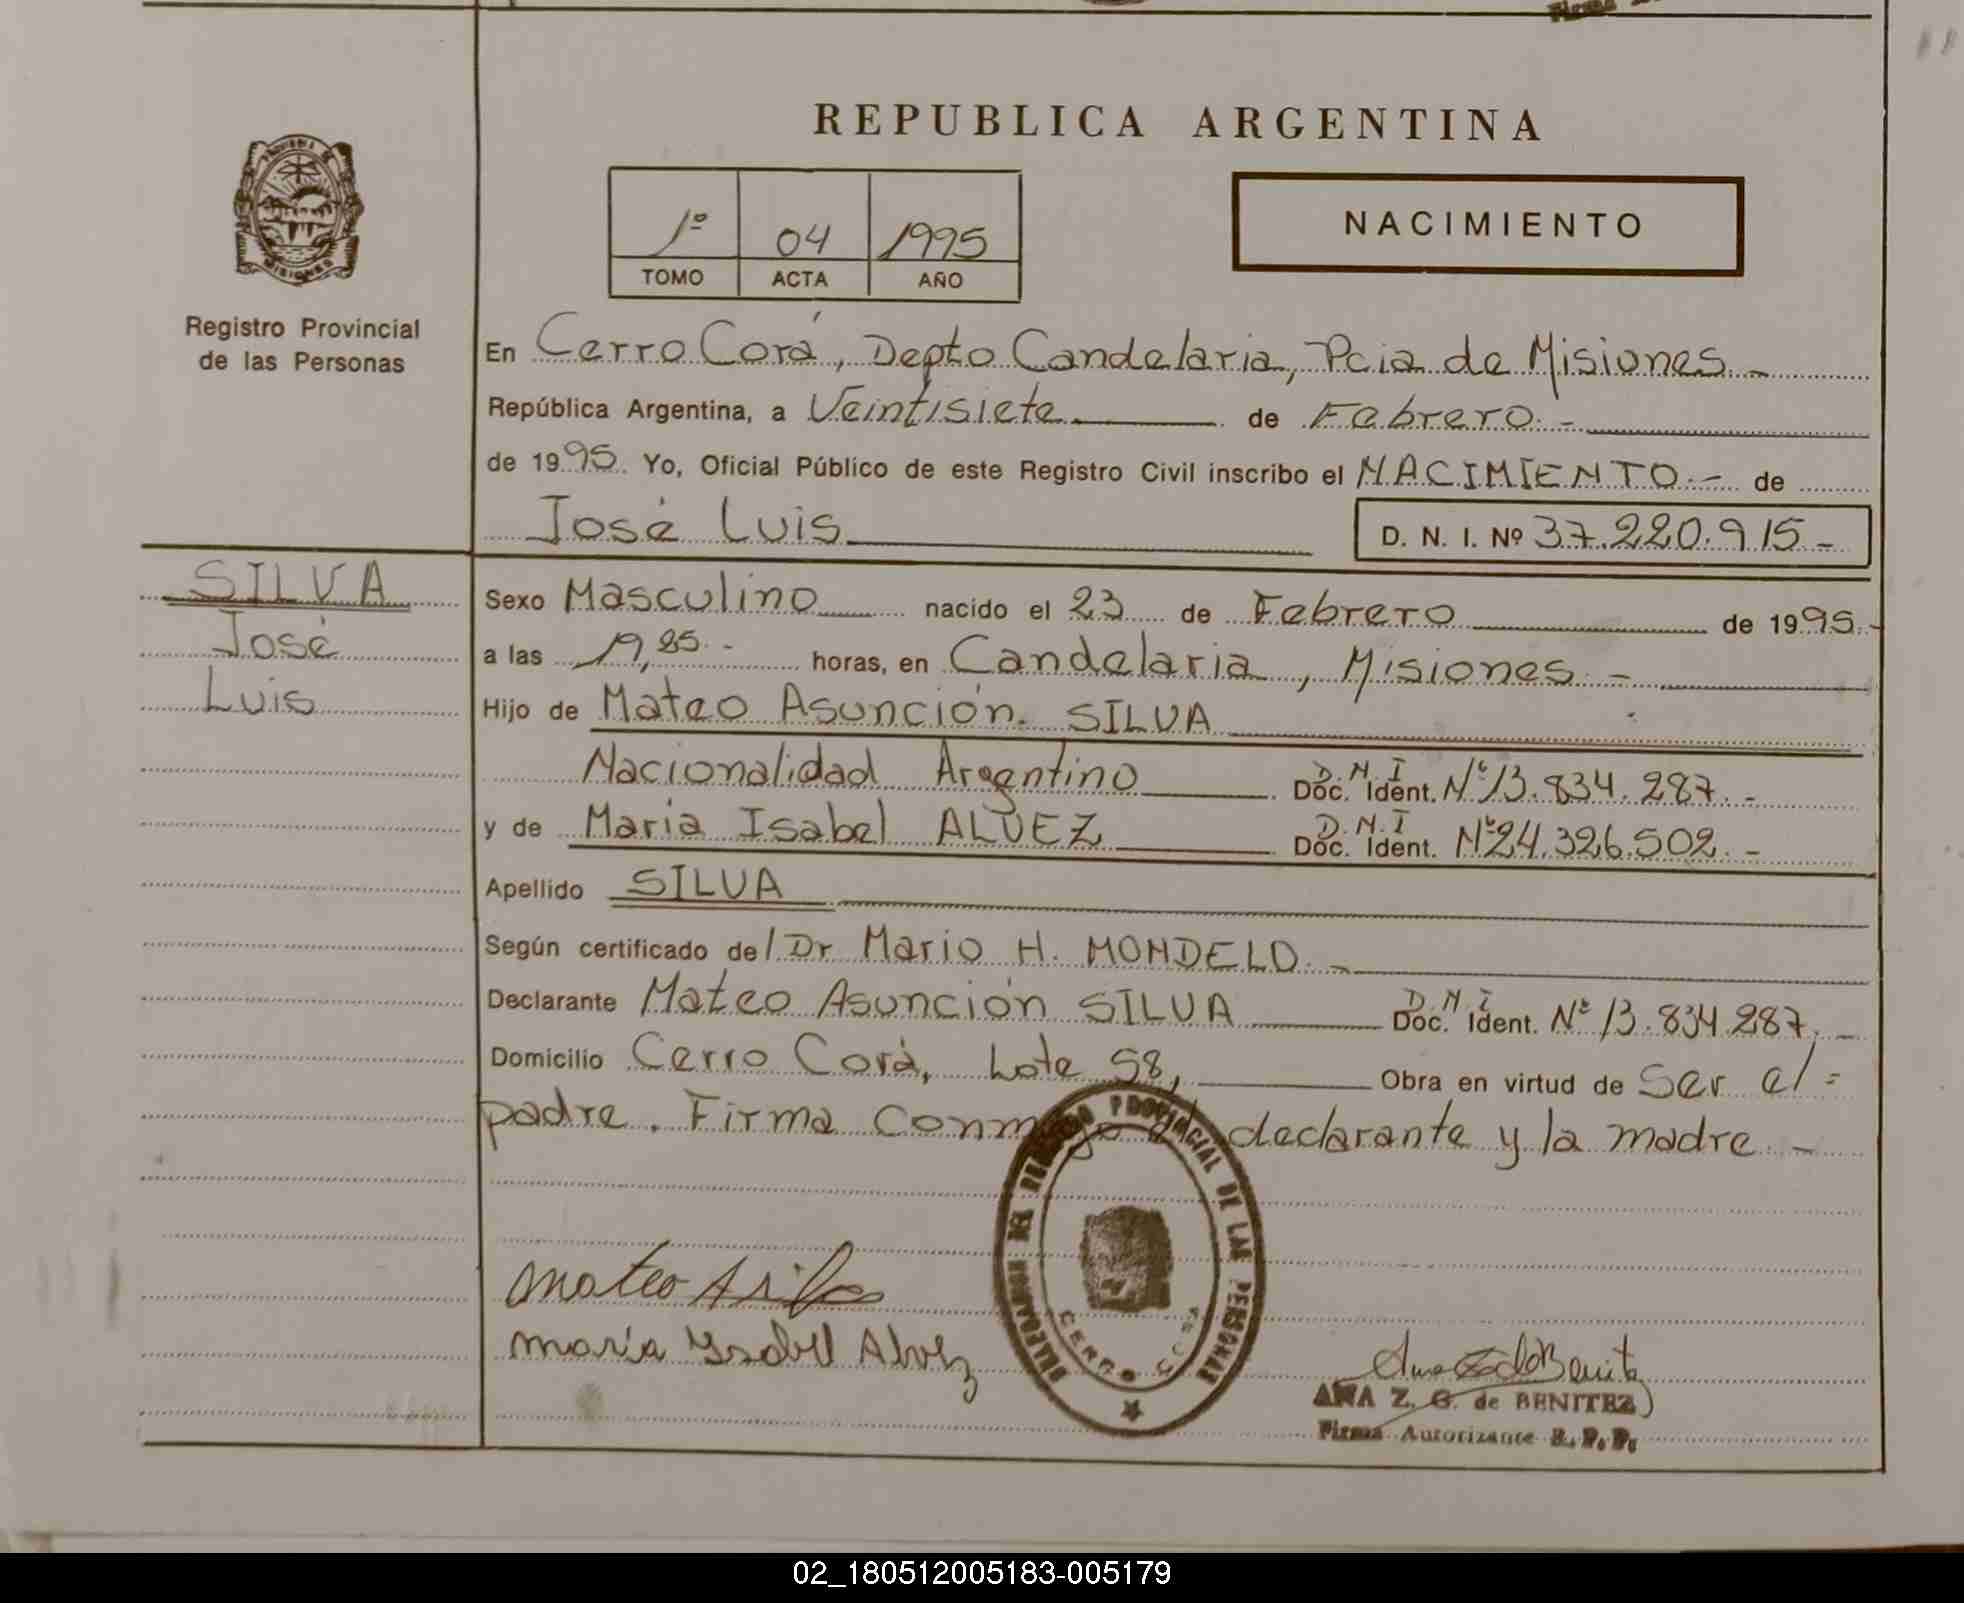 REPUBLICA ARGENTINA
PROVINCIA DE
MISIONES
Registro Provincial
de las Personas
1º 04 1995
TOMO ACTA AÑO
NACIMIENTO
En Cerro Corá, Depto Candelaria, Pcia de Misiones.-
República Argentina, a Veintisiete de Febrero.-
de 1995. Yo, Oficial Público de este Registro Civil inscribo el NACIMIENTO.- de
José Luis D. N. I. Nº 37.220.915-
SILVA
José
Luis
Sexo Masculino nacido el 23 de Febrero de 1995.-
a las horas, en Candelaria, Misiones.-
Hijo de Mateo Asunción SILVA
Nacionalidad Argentino D.N.I Doc. Ident. Nº 13.834.287.-
y de Maria Isabel ALVEZ D.N.I Doc. Ident. Nº 24.326.502.-
Apellido SILVA
Según certificado de/ Dr Mario H. MONDELO.-
Declarante Mateo Asunción SILVA D.N.I Doc. Ident. Nº 13.834.287.-
Domicilio Cerro Corá, Lote 58, Obra en virtud de Ser el=
padre. Firma conmigo el declarante y la madre.-
DELEGACION DEL REGISTRO PROVINCIAL DE LAS PERSONAS
CERRO CORA
Mateo A Silva
María Ysabel Alvez
Ana Z G de Benitez
ANA Z. G. de BENITEZ
Firma Autorizante R. P. P.
02_180512005183-005179